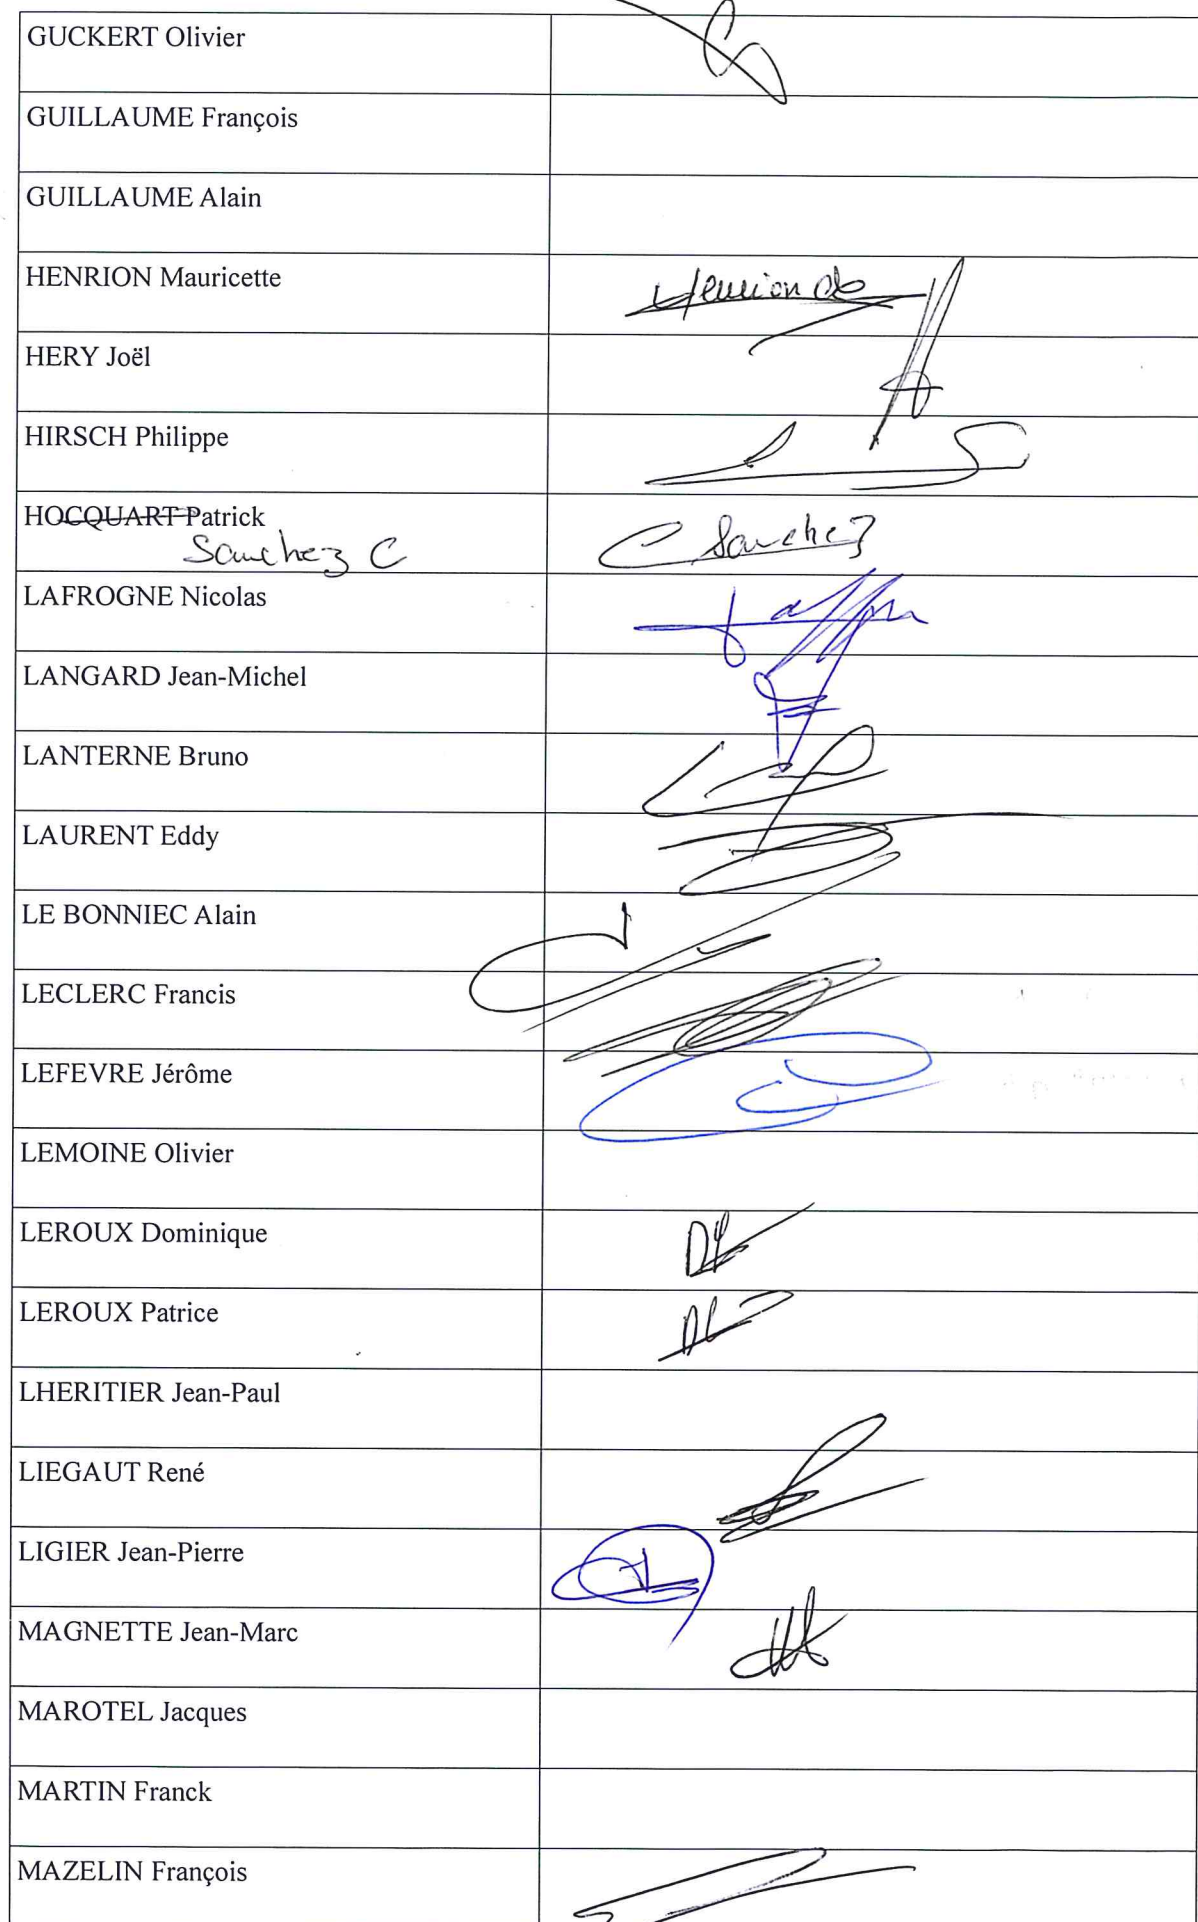 GUCKERT Olivier
GUILLAUME François
GUILLAUME Alain
HENRION Mauricette
Henrion
HERY Joël
HIRSCH Philippe
HOCQUART Patrick
Sanchez C
C Sanchez
LAFROGNE Nicolas
LANGARD Jean-Michel
LANTERNE Bruno
LAURENT Eddy
LE BONNIEC Alain
LECLERC Francis
LEFEVRE Jérôme
LEMOINE Olivier
LEROUX Dominique
LEROUX Patrice
LHERITIER Jean-Paul
LIEGAUT René
LIGIER Jean-Pierre
MAGNETTE Jean-Marc
MAROTEL Jacques
MARTIN Franck
MAZELIN François